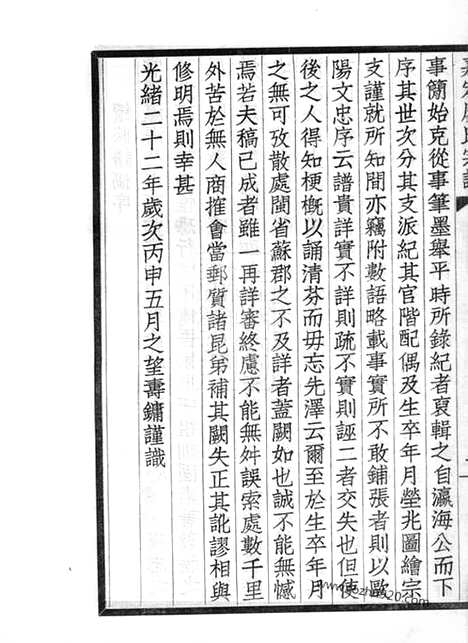 事簡始克從事筆墨舉平時所錄紀者裒輯之自瀛海公而下
序其世次分其支派紀其官階配偶及生卒年月塋兆圖繪宗
支謹就所知間亦竊附數語略載事實所不敢鋪張者則以歐
陽文忠序云譜貴詳實不詳則疏不實則誣二者交失也但使
後之人得知梗概以誦清芬而毋忘先澤云爾至於生卒年月
之無可攷散處閩省蘇郡之不及詳者蓋闕如也誠不能無憾
焉若夫稿已成者雖一再詳審終慮不能無舛誤索處數千里
外苦於無人商搉會當郵質諸昆弟補其闕失正其訛謬相與
修明焉則幸甚
光緒二十二年歲次丙申五月之望壽鏞謹識